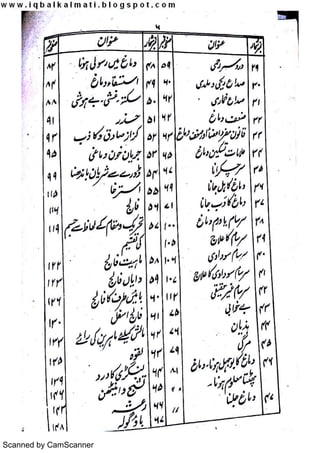 www.iqbalkalmati.blogspot.com
۶
نمبر شمار عنوان صفحہ نمبر
۲۹ درد سر
۳۰
۳۱ صداع خماری
۳۲ ضعف دماغ ۶۲
۳۳
۳۴ علامات تسکین دماغ ۶۵
۳۵ سر چکرانا ۶۷
۳۶ دماغ کا ہل جانا ۶۹
۳۷ دماغ کا دب جانا ۷۱
۳۸ سرسام یا ورم دماغ ۱۰۰
۳۹ سرسام کا علاج ۱۰۵
۴۰ سرسام سوداوی ۱۰۶
۴۱ سرسام سوداوی کا علاج ۱۰۷
۴۲ سرسام غیر حقیقی ۱۱۲
۴۳ بے خوابی ۷۵
۴۴ ہذیان ۷۶
۴۵ مرگی ۷۹
۴۶ دماغ کا بوجھل ہونا۔ دماغ ۸۱
معلوم ہونا۔
۴۷ دماغ جلنا
نمبر شمار عنوان صفحہ نمبر
۴۸ دماغ میں رسولی ہونا ۸۲
۴۹ استسقاء دماغ ۸۴
۵۰ سکتہ۔ غشی۔ بے ہوشی ۸۸
۵۱ خدر ۹۱
۵۲ کزاز صادق و کاذب ۹۳
۵۳ جریان خون دماغی ۹۵
۵۴ ڈورے سے شریان باندھنا ۹۹
۵۵ استرخا ۱۱۵
۵۶ فالج ۱۱۶
۵۷ تحریک و مقام کے لحاظ سے جسم ۱۱۹
کی تقسیم
۵۸ ماہیت فالج ۱۲۲
۵۹ دایاں فالج ۱۲۳
۶۰ بائیں طرف کا فالج ۱۲۶
۶۱ فالج اسفل ۱۳۰
۶۲ مالش کیلئے ماہرین کی رائے ۱۳۵
۶۳ لقوہ
۶۴ لنگڑی کا درد ۱۳۹
۶۵ تشنج و اینٹھن ۱۴۲
۶۶ رعشہ ۱۴۳
۶۷ باؤ گولہ ۱۴۸
Scanned by CamScanner